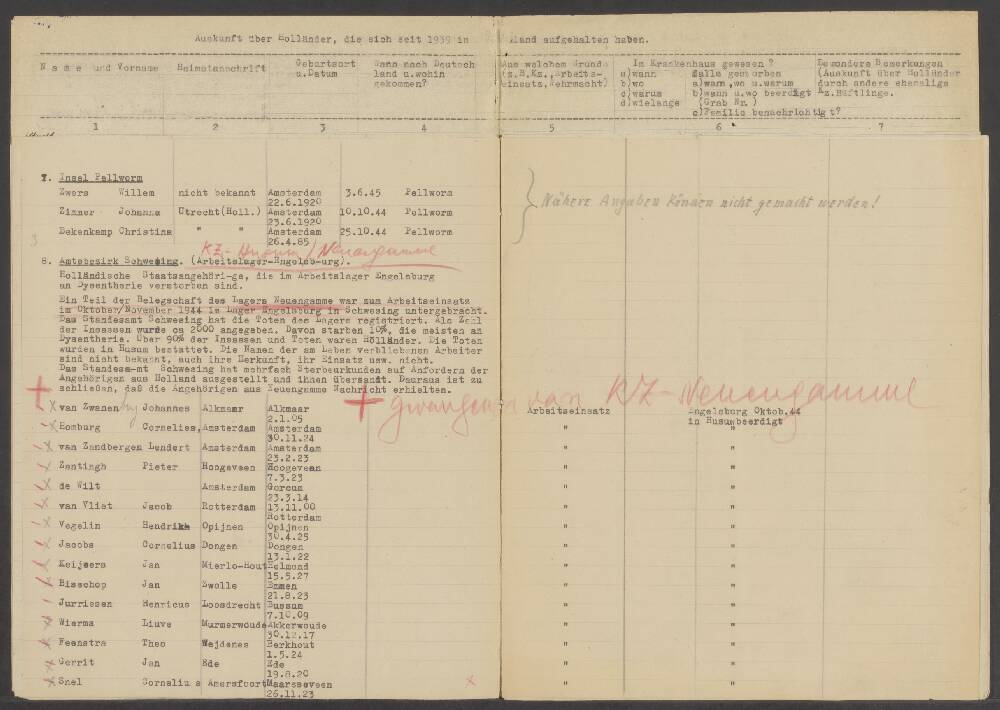 Auskunft über Holländer, die sich seit 1939 in land aufgehalten haben.
Name und Vorname
Heimatanschrift
Geburtsort u.Datum
Wann nach Deutsch land u.wohin gekommen?
Aus welchem Grunde (z.B.Kz.,Arbeits- einsatz,Wehrmacht)
Im Krankenhaus gewesen ?
a)wann
b)wo
c)warum
d)wielange
falls gestorben
a)wann,wo u.warum
b)wann u.wo beerdigt (Grab Nr.)
c)Familie benachrichtigt?
Besondere Bemerkungen (Auskunft über Holländer durch andere ehemalige Kz.Häftlinge.
1 2 3 4 5 6 7
7. Insel Pellworm
Zwers Willem nicht bekannt Amsterdam 3.6.45 Pellworm
22.6.1920
Zimmer Johanna Utrecht(Holl.) Amsterdam 10.10.44 Pellworm
23.6.1920
Bekenkamp Christina " " Amsterdam 25.10.44 Pellworm
26.4.85
Nähere Angaben können nicht gemacht werden!
3
KZ-Husum/Neuengamme
8. Amtsbezirk Schwesing. (Arbeitslager-Engelsburg).
Holländische Staatsangehöri-ge, die im Arbeitslager Engelsburg
an Dysentherie verstorben sind.
Ein Teil der Belegschaft des Lagers Neuengamme war zum Arbeitseinsatz
im Oktober/November 1944 im Lager Engelsburg in Schwesing untergebracht.
Das Standesamt Schwesing hat die Toten des Lagers registriert. Als Zahl
der Insassen wurde ca 2000 angegeben. Davon starben 10%, die meisten an
Dysentherie. Über 90% der Insassen und Toten waren Holländer. Die Toten
wurden in Husum bestattet. Die Namen der am Leben verbliebenen Arbeiter
sind nicht bekannt, auch ihre Herkunft, ihr Einsatz usw. nicht.
Das Standesa-mt Schwesing hat mehrfach Sterbeurkunden auf Anfordern der
Angehörigen aus Holland ausgestellt und ihnen übersandt. Dauraus ist zu
schließen, daß die Angehörigen aus Neuengamme Nachricht erhielten.
KZ-Neuengamme
van Zwanen Johannes Alkmaar Alkmaar Arbeitseinsatz Angelsburg Oktob.44
2.1.05 in Husumbeerdigt
Homburg Cornelies, Amsterdam Amsterdam " "
30.11.24
van Zandbergen Lendert Amsterdam Amsterdam " "
23.2.23
Zantingh Pieter Hoogeveen Hoogeveen " "
7.3.23
de Wilt Amsterdam Gorcum " "
23.3.14
van Vliet Jacob Rotterdam 13.11.00 " "
Rotterdam
Vegelin Hendrik Opijnen Opijnen " "
30.4.25
Jacobs Cornelius Dongen Dongen " "
13.1.22
Keijsers Jan Mierlo-Hout Helmond " "
15.5.27
Bisschop Jan Zwolle Emmen " "
21.8.23
Jurriesen Henricus Loosdrecht Bussum " "
7.10.09
Wierma Liuve Murmerwoude Akkerwoude " "
30.12.17
Feenstra Theo Wejdenes Berkhout " "
1.5.24
Gerrit Jan Ede Ede " "
19.8.20
Snel Cornelius Amersfoort Maarsseveen " "
26.11.23